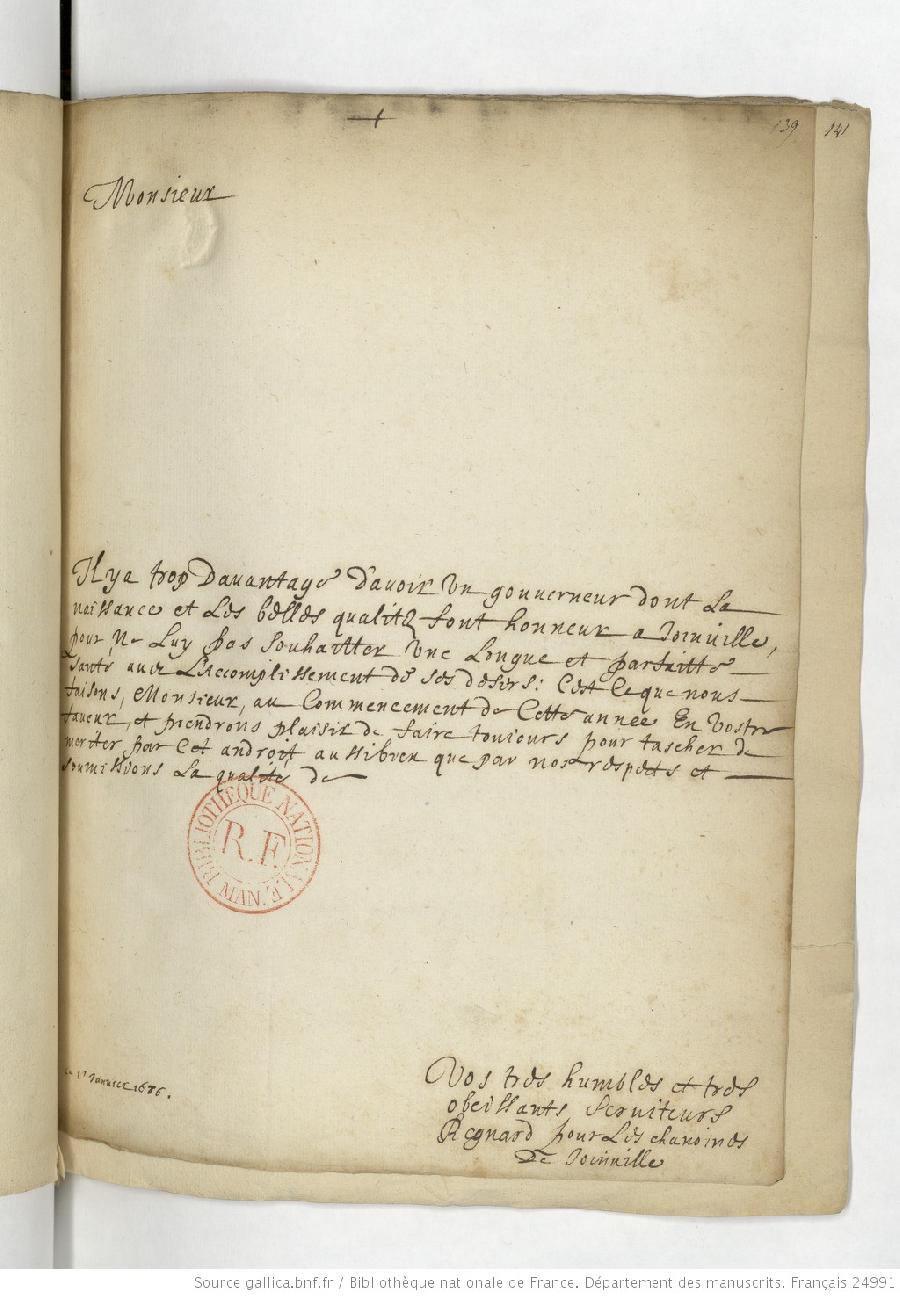 139 141
Monsieur
Il y a trop Davantage D'avoir Un gouverneur dont La
naissance et Les belles qualitéz font honneur a Joinville,
pour Ne Luy pas souhaitter Une Longue et parfaitte
santé avec L'accomplissement de ses desirs: C'est Ce que nous
faisons, Monsieur, au Commencement de Cette année En Vostre
faveur, et prendrons plaisir de faire tousiours pour tascher de
meriter par Cet androit aussibien que par nos respects et
soumissions La qualité de
BIBLIOTHEQUE NATIONALE MAN.
R.F.
Janvier 1676.
Vos tres humbles et tres
obeissants serviteurs
Regnard pour Les chanoines
De Joinville
Source gallica.bnf.fr / Bibliothèque nationale de France. Département des manuscrits. Français 24991